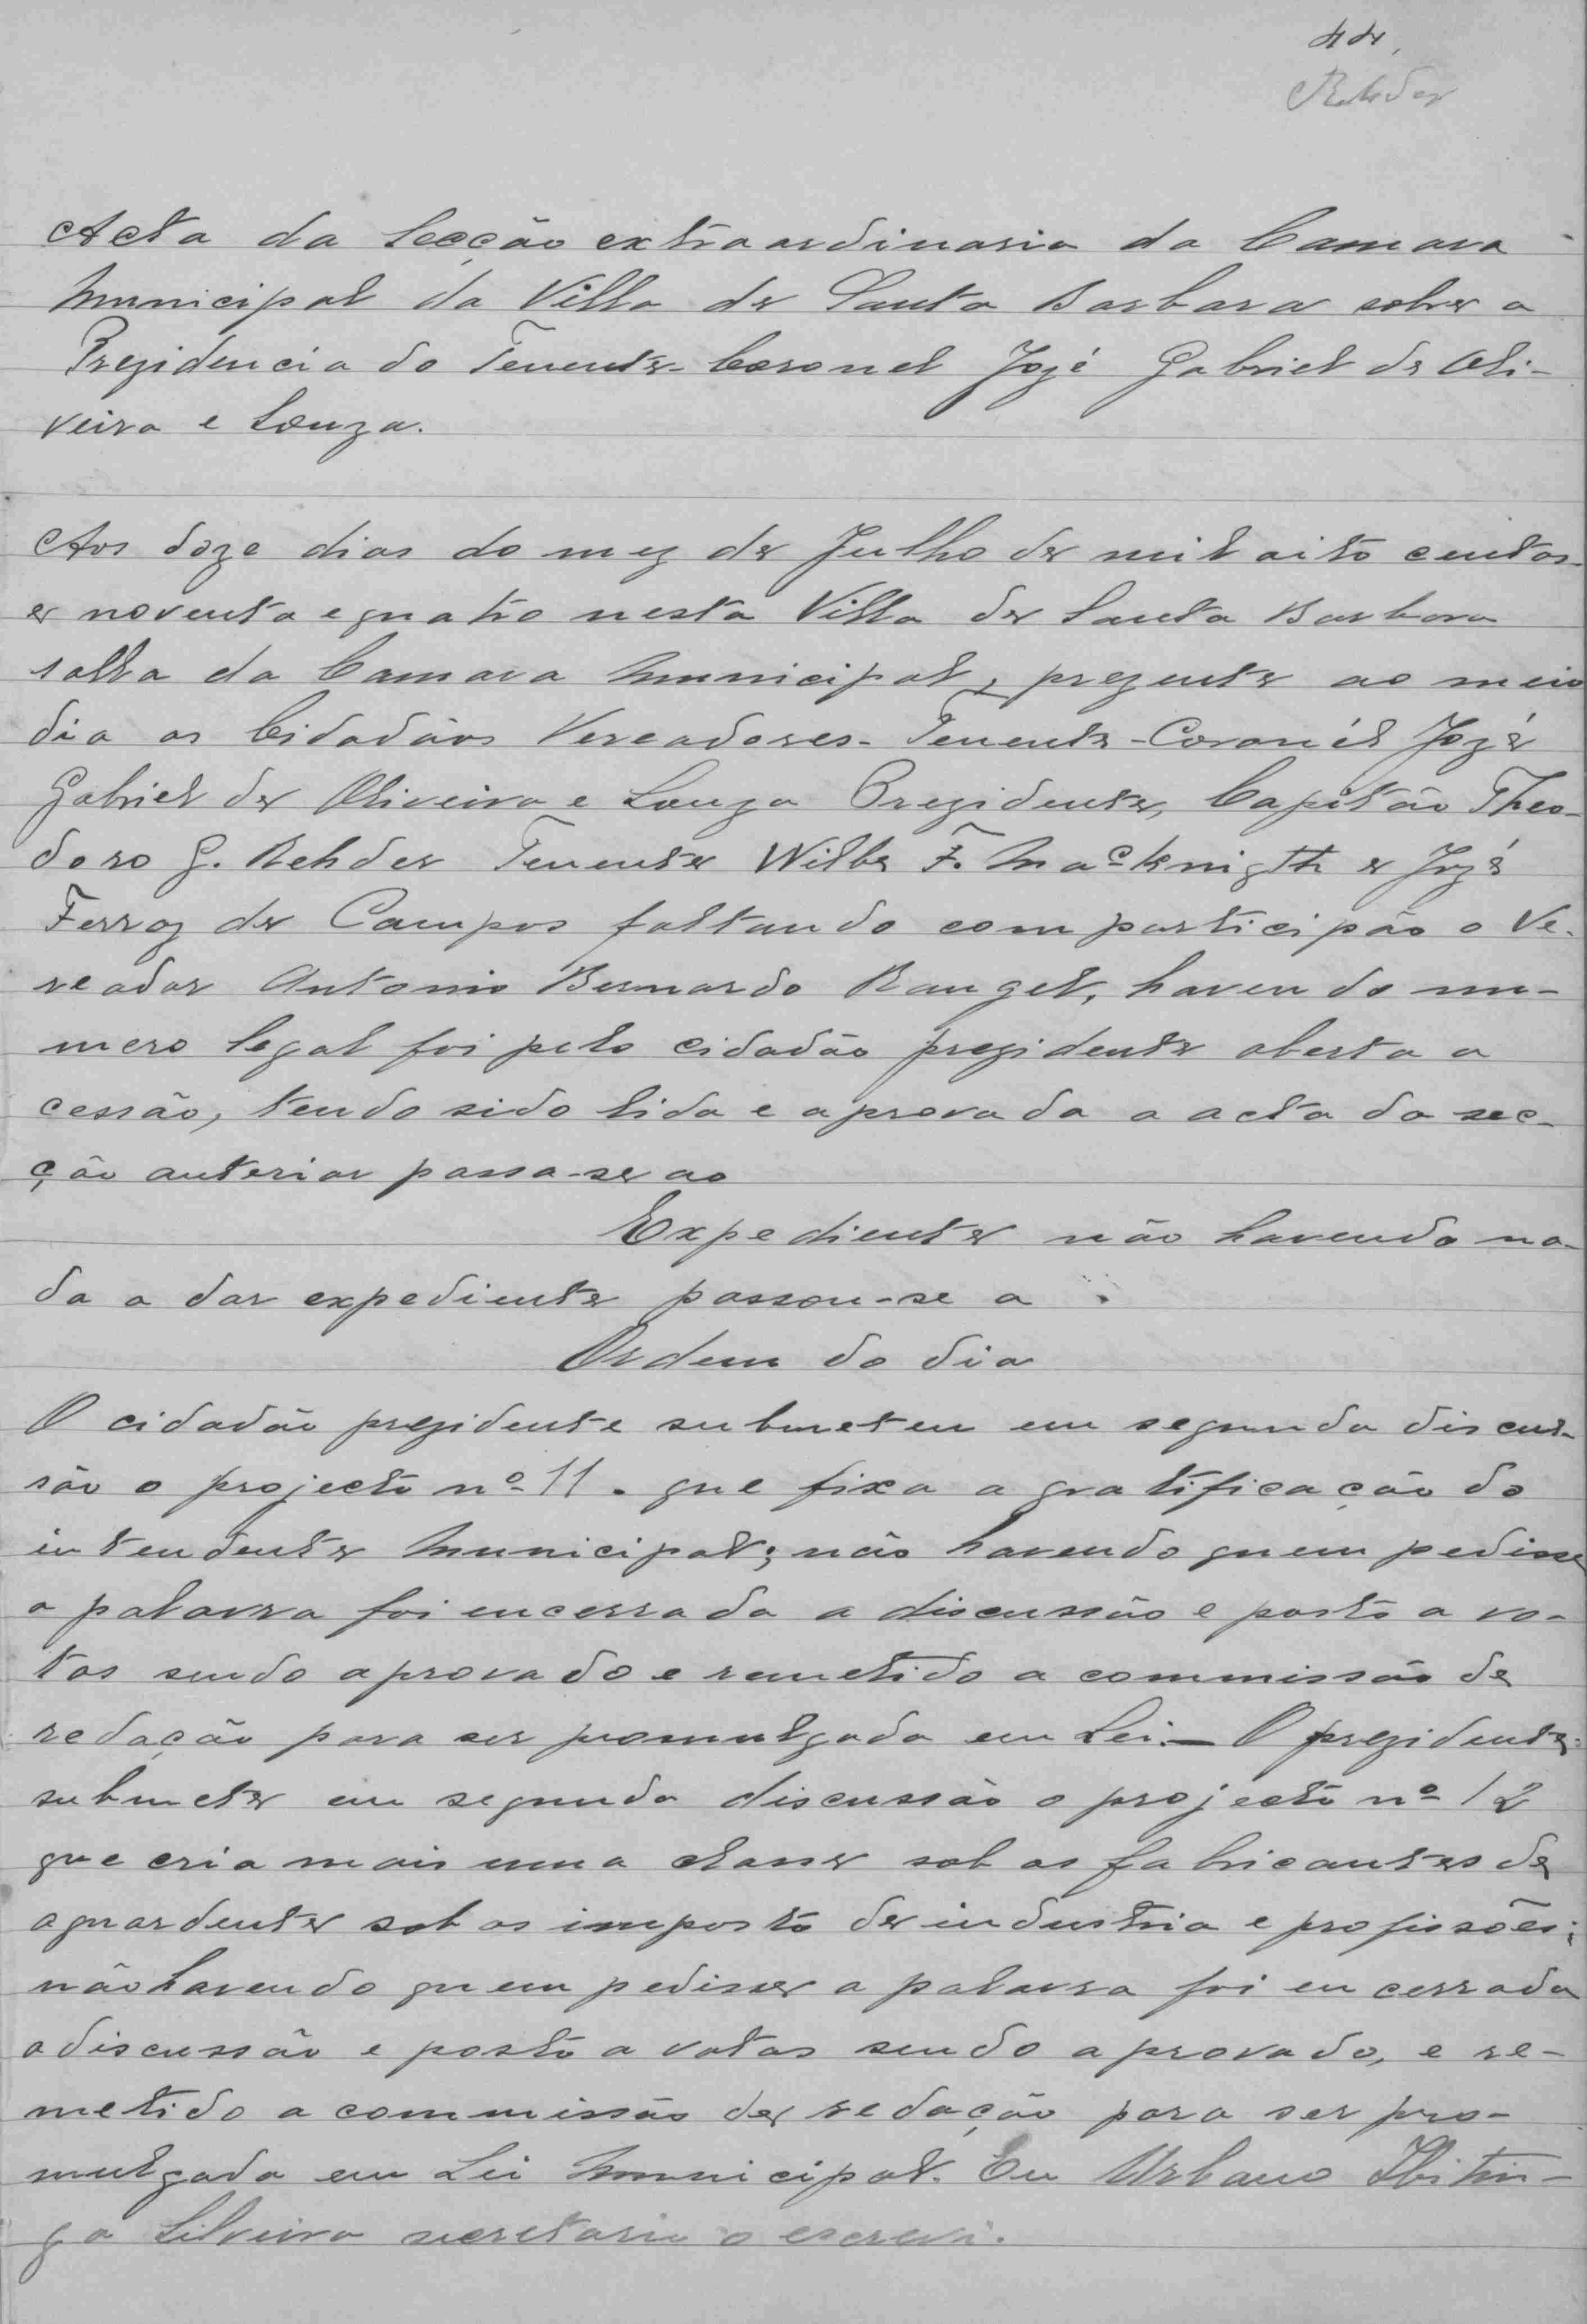 44,
Rehder
Acta da Secção extraordinaria da Camara
Municipal da Villa de Santa Barbara sobre a
Prezidencia do Tenente-Coronel Jozé Gabriel de Oli-
veira e Souza.
Aos doze dias do mez de Julho de mil oito centos
e noventa e quatro nesta Villa de Santa Barbara
salla da Camara Municipal, prezente ao meio
dia os Cidadãos Vereadores- Tenente-Coronél Jozé
Gabriel de Oliveira e Souza Prezidente, Capitão Theo-
doro G. Rehder Tenente Wilbe F. Mac Knigth e Jozé
Ferraz de Campos faltando com participão o Ve-
reador Antonio Bernardo Rangel, havendo nu-
mero legal foi pelo cidadão prezidente aberta a
cessão, tendo sido lida e aprovada a acta da sec-
ção anterior passa-se ao
Expediente não havendo na-
da a dar expediente passou-se a
Ordem do dia
O cidadão prezidente submeteu em segunda discus-
são o projecto nº 11. que fixa a gratificação do
intendente Municipal; não havendo quem pedisse
a palavra foi encerrada a discussão e posto a vo-
tos sendo aprovado e remetido a commissão de
redação para ser promulgada em Lei.— O prezidente
submete em segunda discussão o projecto nº 12
que cria mais uma classe sob os fabricantes de
aguardente sob os imposto de industria e profissões;
não havendo quem pedisse a palavra foi encerrada
a discussão e posto a votos sendo aprovado, e re-
metido a commissão de redação para ser pro-
mulgada em Lei Municipal. Eu Urbano Ibitin-
ga Silveira secretario o escrevi.